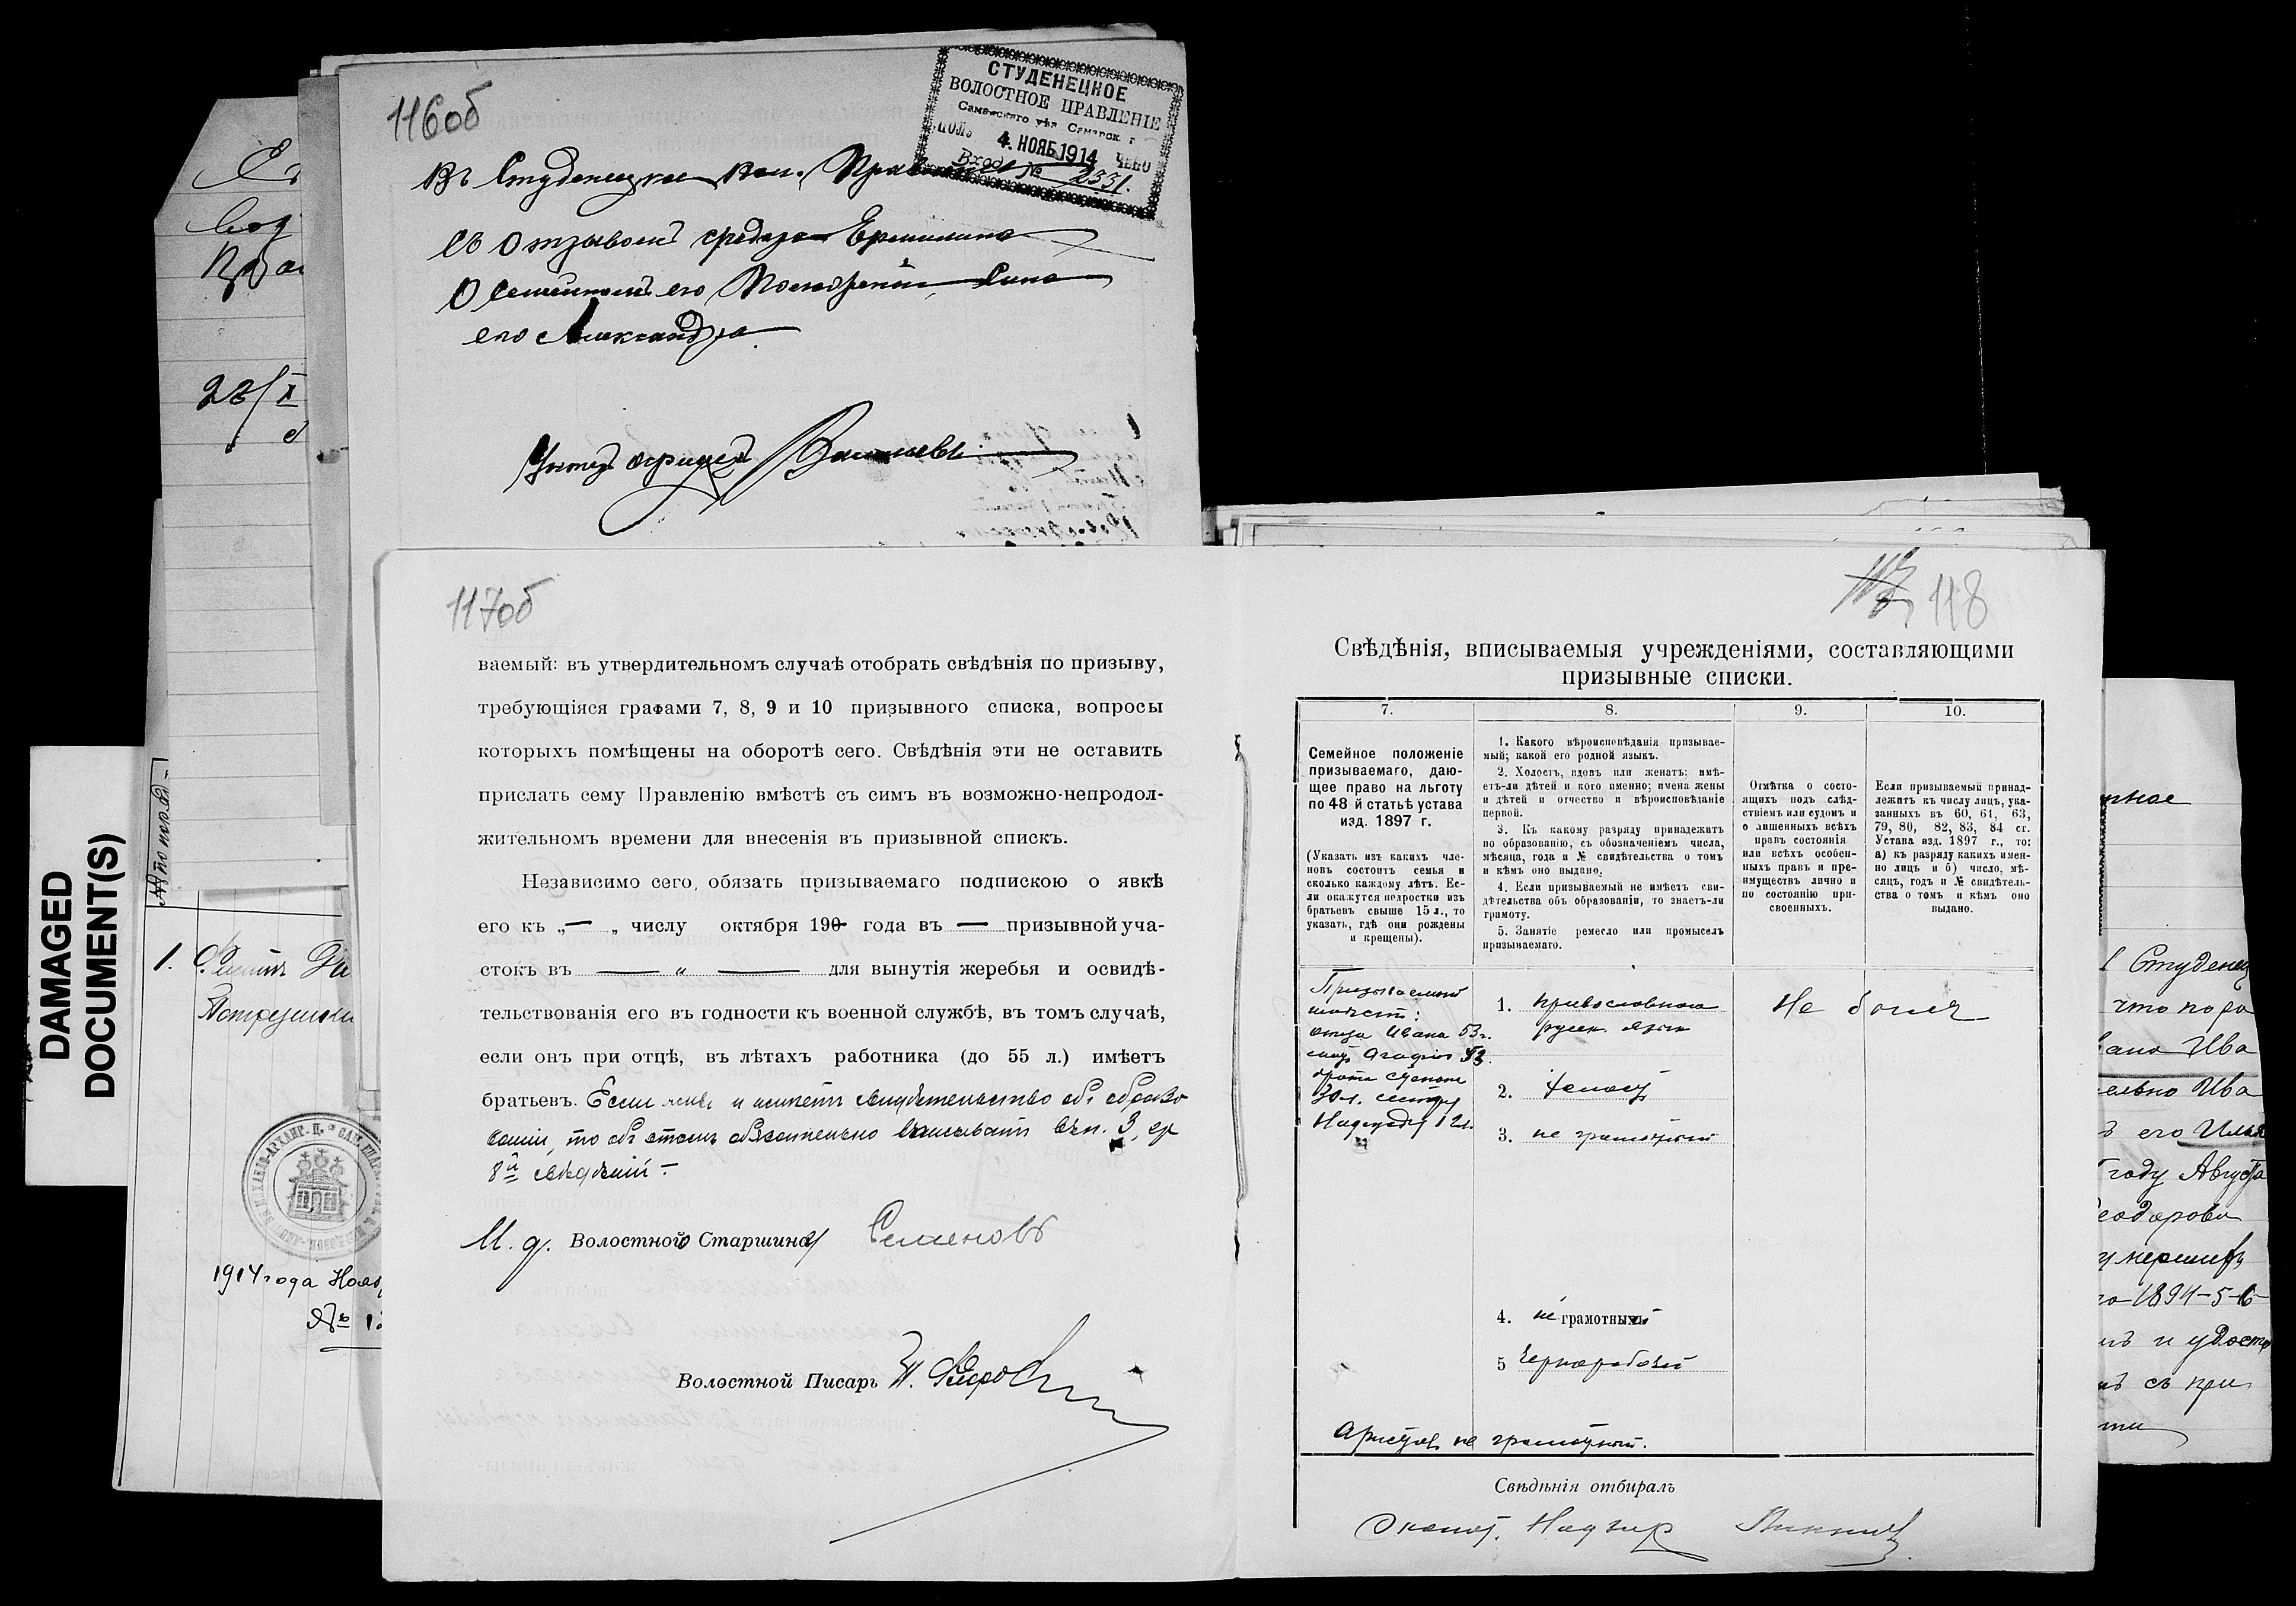 116об
СТУДЕНЕЦКОЕ
ВОЛОСТНОЕ ПРАВЛЕНІЕ
Самарского уѣз. Самарск. г
ПОЛУ 4. НОЯБ 1914 ЧЕНО
Вход. № 2331.
Въ Студенецкое Вол. Правленіе
Съ отзывомъ
о семейномъ его
его Александра
28/X
DAMAGED
DOCUMENT(S)
1.
1914 года Нояб
№
117об
ваемый: въ утвердительномъ случаѣ отобрать свѣдѣнія по призыву,
требующіяся графами 7, 8, 9 и 10 призывного списка, вопросы
которыхъ помѣщены на оборотѣ сего. Свѣдѣнія эти не оставить
прислать сему Правленію вмѣстѣ съ симъ въ возможно-непродол-
жительномъ времени для внесенія въ призывной спискъ.
Независимо сего, обязать призываемаго подпискою о явкѣ
его къ „— „ числу октября 190 года въ — призывной уча-
стокъ въ — „ — для вынутія жеребья и освидѣ-
тельствованія его въ годности къ военной службѣ, въ томъ случаѣ,
если онъ при отцѣ, въ лѣтахъ работника (до 55 л.) имѣетъ
братьевъ. Если и имѣетъ свидѣтельство объ образо
ваніи, то объ этомъ обязательно вписывать въ п. 3, гр
8й свѣдѣній.—
И. д. Волостного Старшины Семеновъ
Волостной Писарь
118
Свѣдѣнія, вписываемыя учрежденіями, составляющими
призывные списки.
7. 8. 9. 10.
Семейное положеніе
призываемаго, даю-
щее право на льготу
по 48 й статьѣ устава
изд. 1897 г.
(Указать изъ какихъ чле-
новъ состоитъ семья и
сколько каждому лѣтъ. Ес-
ли окажутся подростки изъ
братьевъ свыше 15 л., то
указать, гдѣ они рождены
и крещены).
1. Какого вѣроисповѣданія призывае-
мый; какой его родной языкъ.
2. Холостъ, вдовъ или женатъ; имѣ-
етъ-ли дѣтей и кого именно; имена жены
и дѣтей и отчество и вѣроисповѣданіе
первой.
3. Къ какому разряду принадлежитъ
по образованію, съ обозначеніемъ числа,
мѣсяца, года и № свидѣтельства о томъ
и кѣмъ оно выдано.
4. Если призываемый не имѣетъ сви-
дѣтельства объ образованіи, то знаетъ-ли
грамоту.
5. Занятіе ремесло или промыселъ
призываемаго.
Отмѣтка о состо-
ящихъ подъ слѣд-
ствіемъ или судомъ и
о лишенныхъ всѣхъ
правъ состоянія
или всѣхъ особен-
ныхъ правъ и пре-
имуществъ лично и
по состоянію при-
своенныхъ.
Если призываемый принад-
лежитъ къ числу лицъ, ука-
занныхъ въ 60, 61, 63,
79, 80, 82, 83, 84 ст.
Устава изд. 1897 г., то:
а) къ разряду какихъ имен-
но лицъ и б) число, мѣ-
сяцъ, годъ и № свидѣтель-
ства о томъ и кѣмъ оно
выдано.
Призываемый
имѣетъ:
отца Ивана 53 г.
брата Степана
30 л. сестру
Надежду 12 л.
1. православнаго
русск. языкъ
2. холостъ
3. не грамотный
4. не грамотный
5 чернорабочій
Не былъ
не грамотный.
Свѣдѣнія отбиралъ
Околот. Надзир
Студенец
что по ро
Ива
ельно Ива
ъ его Илья
году Августа
еодорова
умершихъ
1894-5-6-
и удосто
съ при